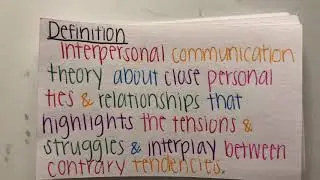 Definition
Interpersonal communication
theory about close personal
ties & relationships that
highlights the tensions &
struggles & interplay between
contrary tendencies.